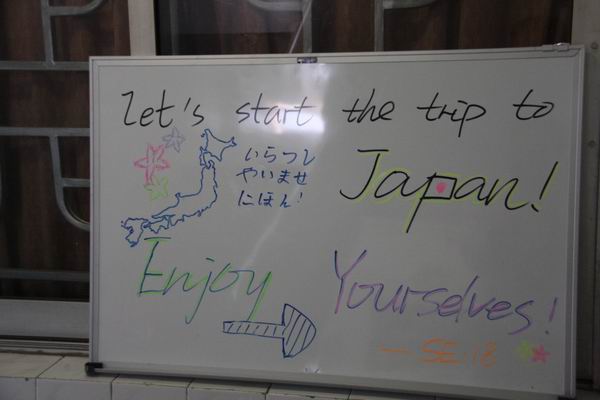 Let's start the trip to
Japan!
いらつし
やいませ
にほん!
Enjoy Yourselves!
— SE.18